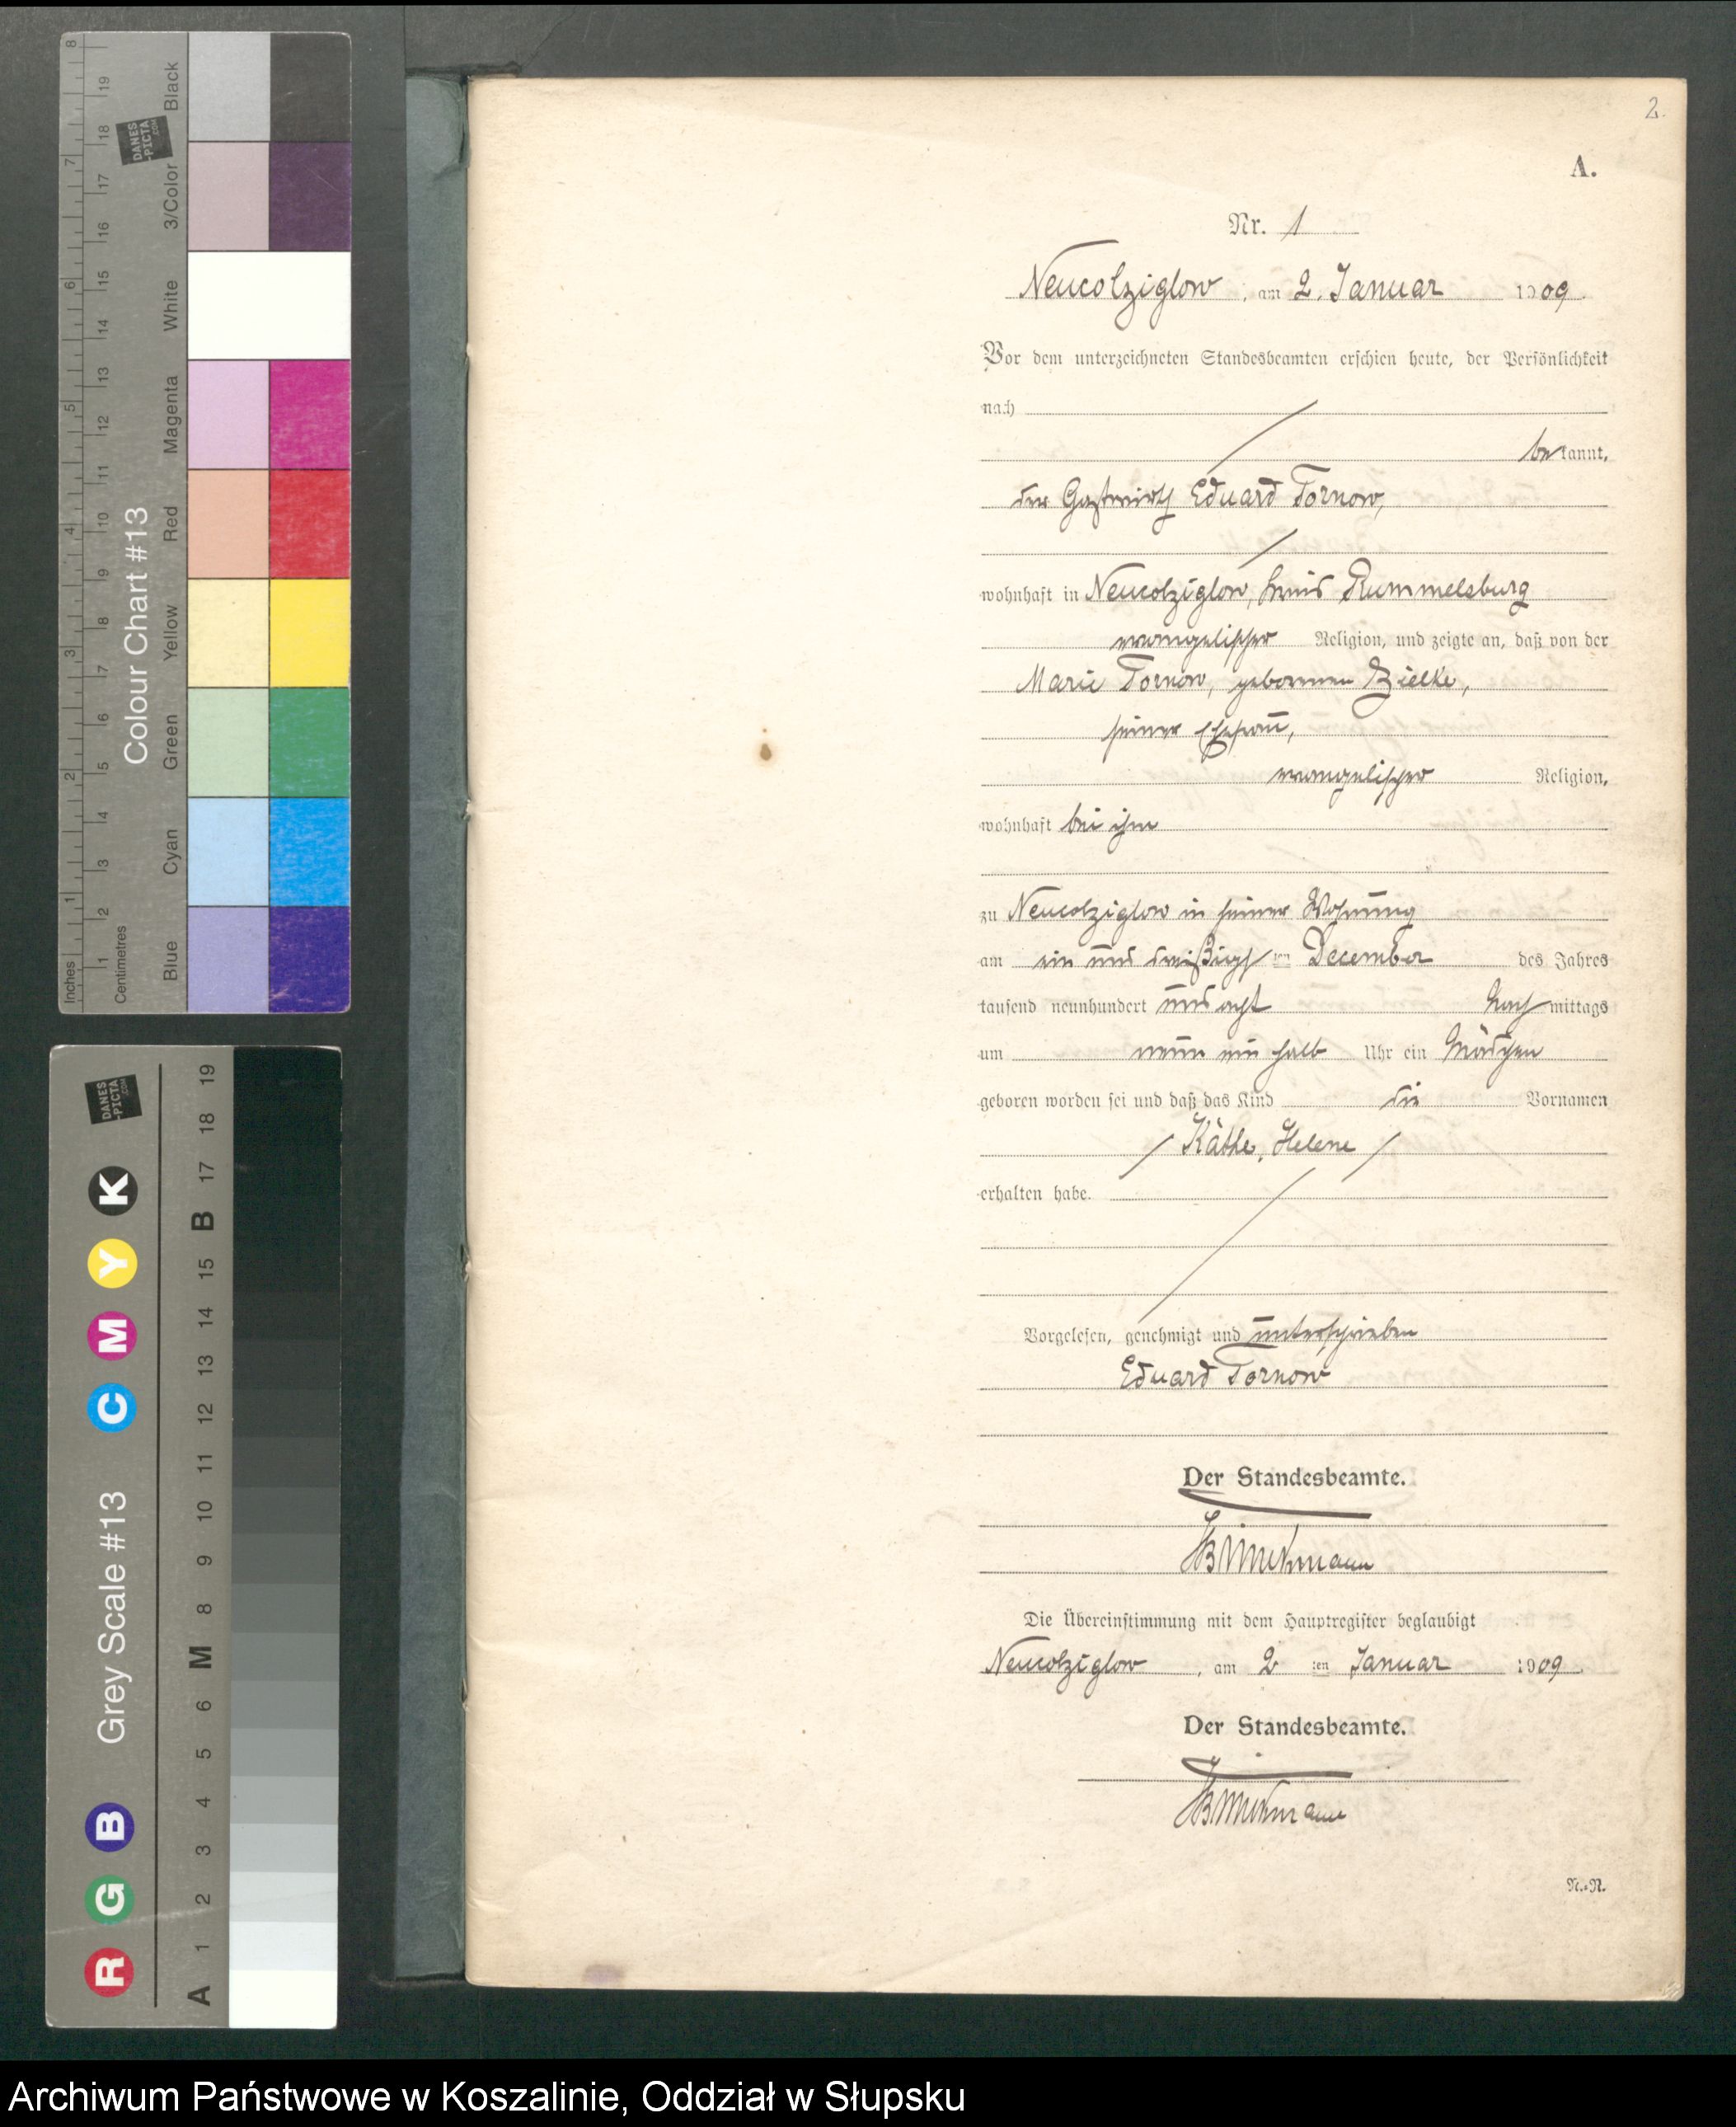 2.
A.
Nr. 1
Neucolziglow, am 2. Januar 1909
Vor dem unterzeichneten Standesbeamten erschien heute, der Persönlichkeit
nach
bekannt,
der Gastwirth Eduard Tornow,
wohnhaft in Neucolziglow, Kreis Rummelsburg
evangelischer Religion, und zeigte an, daß von der
Marie Tornow, geborenen Zielke,
seiner Ehefrau,
evangelischer Religion,
wohnhaft bei ihm
zu Neucolziglow in seiner Wohnung
am ein und dreißigsten December des Jahres
tausend neunhundert und acht Nachmittags
um neun ein halb Uhr ein Mädchen
geboren worden sei und daß das Kind die Vornamen
Käthe, Helene
erhalten habe.
Vorgelesen, genehmigt und unterschrieben
Eduard Tornow
Der Standesbeamte.
Die Übereinstimmung mit dem Hauptregister beglaubigt
Neucolziglow, am 2ten Januar 1909.
Der Standesbeamte.
N.=N.
Colour Chart #13
Blue Cyan Green Yellow Red Magenta White 3/Color Black
Inches 1 2 3 4 5 6 7 8
Centimetres 1 2 3 4 5 6 7 8 9 10 11 12 13 14 15 16 17 18 19
DANES
-PICTA
.COM
Grey Scale #13
R G B C M Y K
A 1 2 3 4 5 6 M 8 9 10 11 12 13 14 15 B 17 18 19
DANES
-PICTA
.COM
Archiwum Państwowe w Koszalinie, Oddział w Słupsku